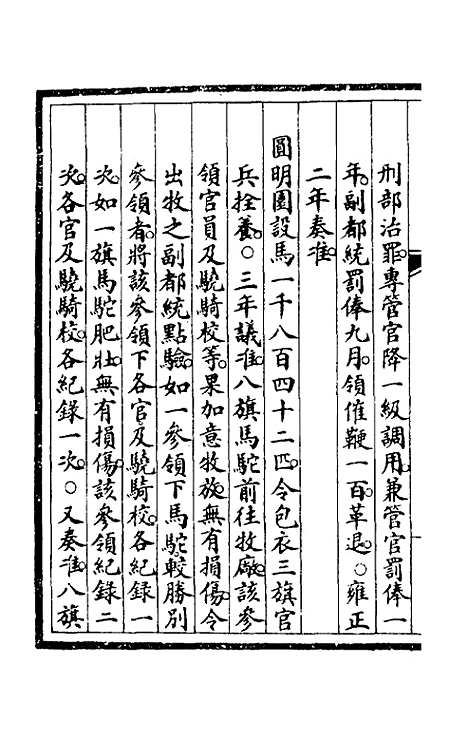 刑部治罪。專管官降一級調用。兼管官罰俸一
年。副都統罰俸九月。領催鞭一百。革退。○雍正
二年奏准。
圓明園設馬一千八百四十二匹。令包衣三旗官
兵拴養。○三年議准。八旗馬駝前往牧廠。該參
領官員及驍騎校等。果加意牧放。無有損傷。令
出牧之副都統點驗。如一參領下馬駝。較勝別
參領者。將該參領下各官及驍騎校。各紀錄一
次。如一旗馬駝肥壯。無有損傷。該參領紀錄二
次。各官及驍騎校。各紀錄一次。○又奏准。八旗